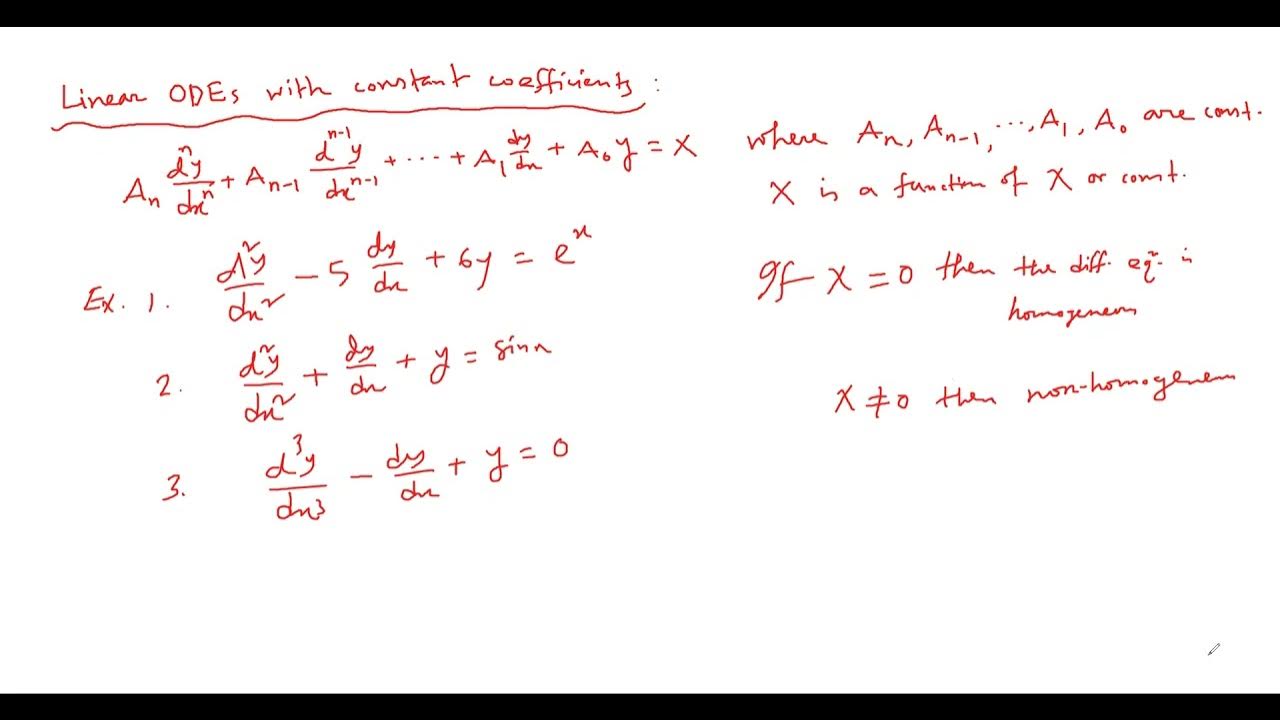 Linear ODEs with constant coefficients :
Aₙ dⁿy/dxⁿ + Aₙ₋₁ dⁿ⁻¹y/dxⁿ⁻¹ + ··· + A₁ dy/dx + A₀ y = X
where Aₙ, Aₙ₋₁, ···, A₁, A₀ are const.
X is a function of X or const.
Ex. 1. d²y/dx² - 5 dy/dx + 6y = eˣ
2. d²y/dx² + dy/dx + y = sinx
3. d³y/dx³ - dy/dx + y = 0
If X = 0 then the diff. eqⁿ. is
homogeneous
X ≠ 0 then non-homogeneous